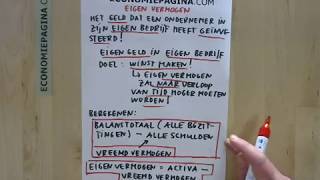 ECONOMIEPAGINA.COM
EIGEN VERMOGEN
HET GELD DAT EEN ONDERNEMER IN
ZIJN EIGEN BEDRIJF HEEFT GEÏNVE-
STEERD!
EIGEN GELD IN EIGEN BEDRIJF
DOEL: WINST MAKEN!
↳ EIGEN VERMOGEN
ZAL NAAR VERLOOP
VAN TIJD HOGER MOETEN
WORDEN!
BEREKENEN:
BALANSTOTAAL (ALLE BEZIT-
TINGEN) – ALLE SCHULDEN
VREEMD VERMOGEN
EIGEN VERMOGEN = ACTIVA –
VREEMD VERMOGEN
ECONOMIEPAGINA.COM
ECONOMIEPAGINA.COM